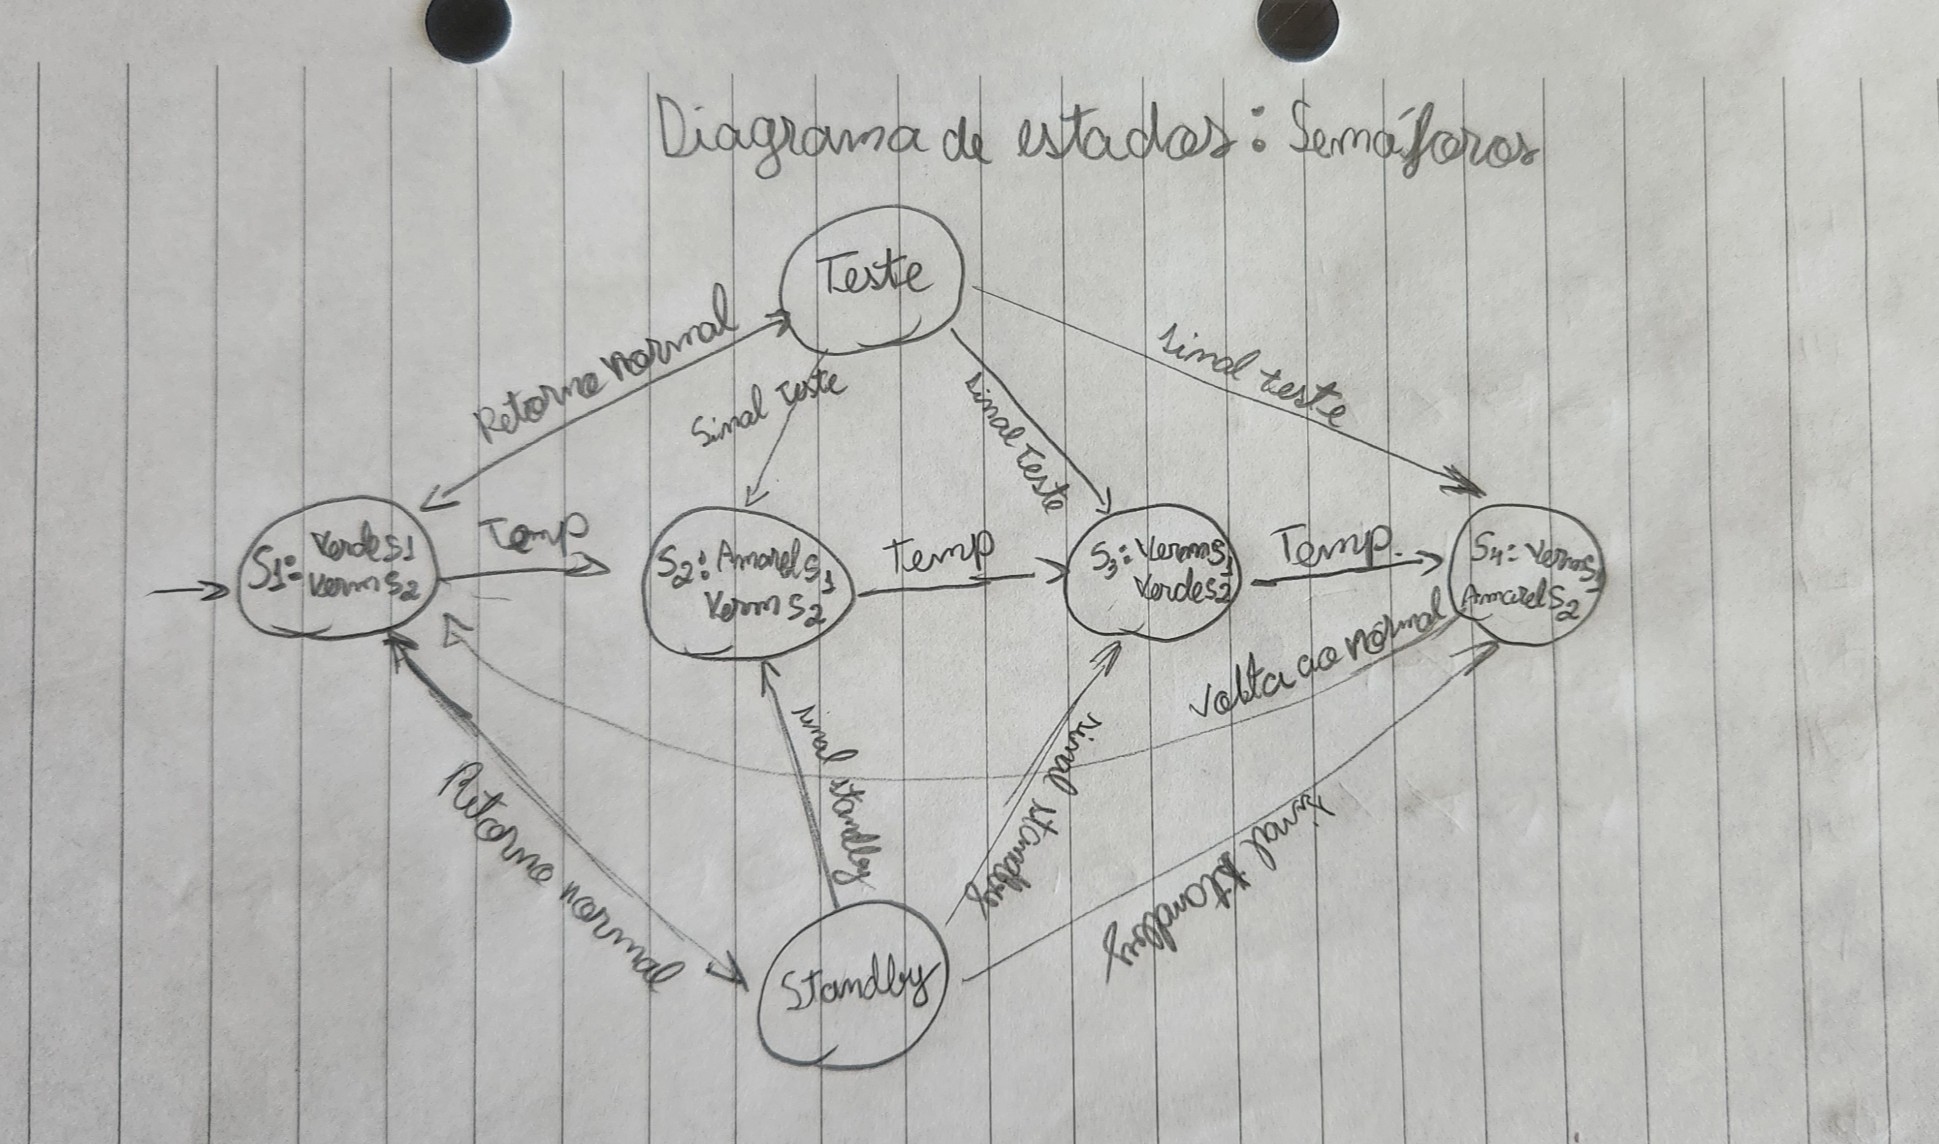 Diagrama de estados: Semáforos
Teste
Retorno normal
Sinal teste
Sinal teste
Sinal teste
S1: Verde S1
Verm S2
Temp
S2: Amarel S1
Verm S2
Temp
S3: Verm S1
Verde S2
Temp.
S4: Verm S1
Amarel S2
Volta ao normal
Retorno normal
sinal standby
sinal standby
sinal standby
Standby